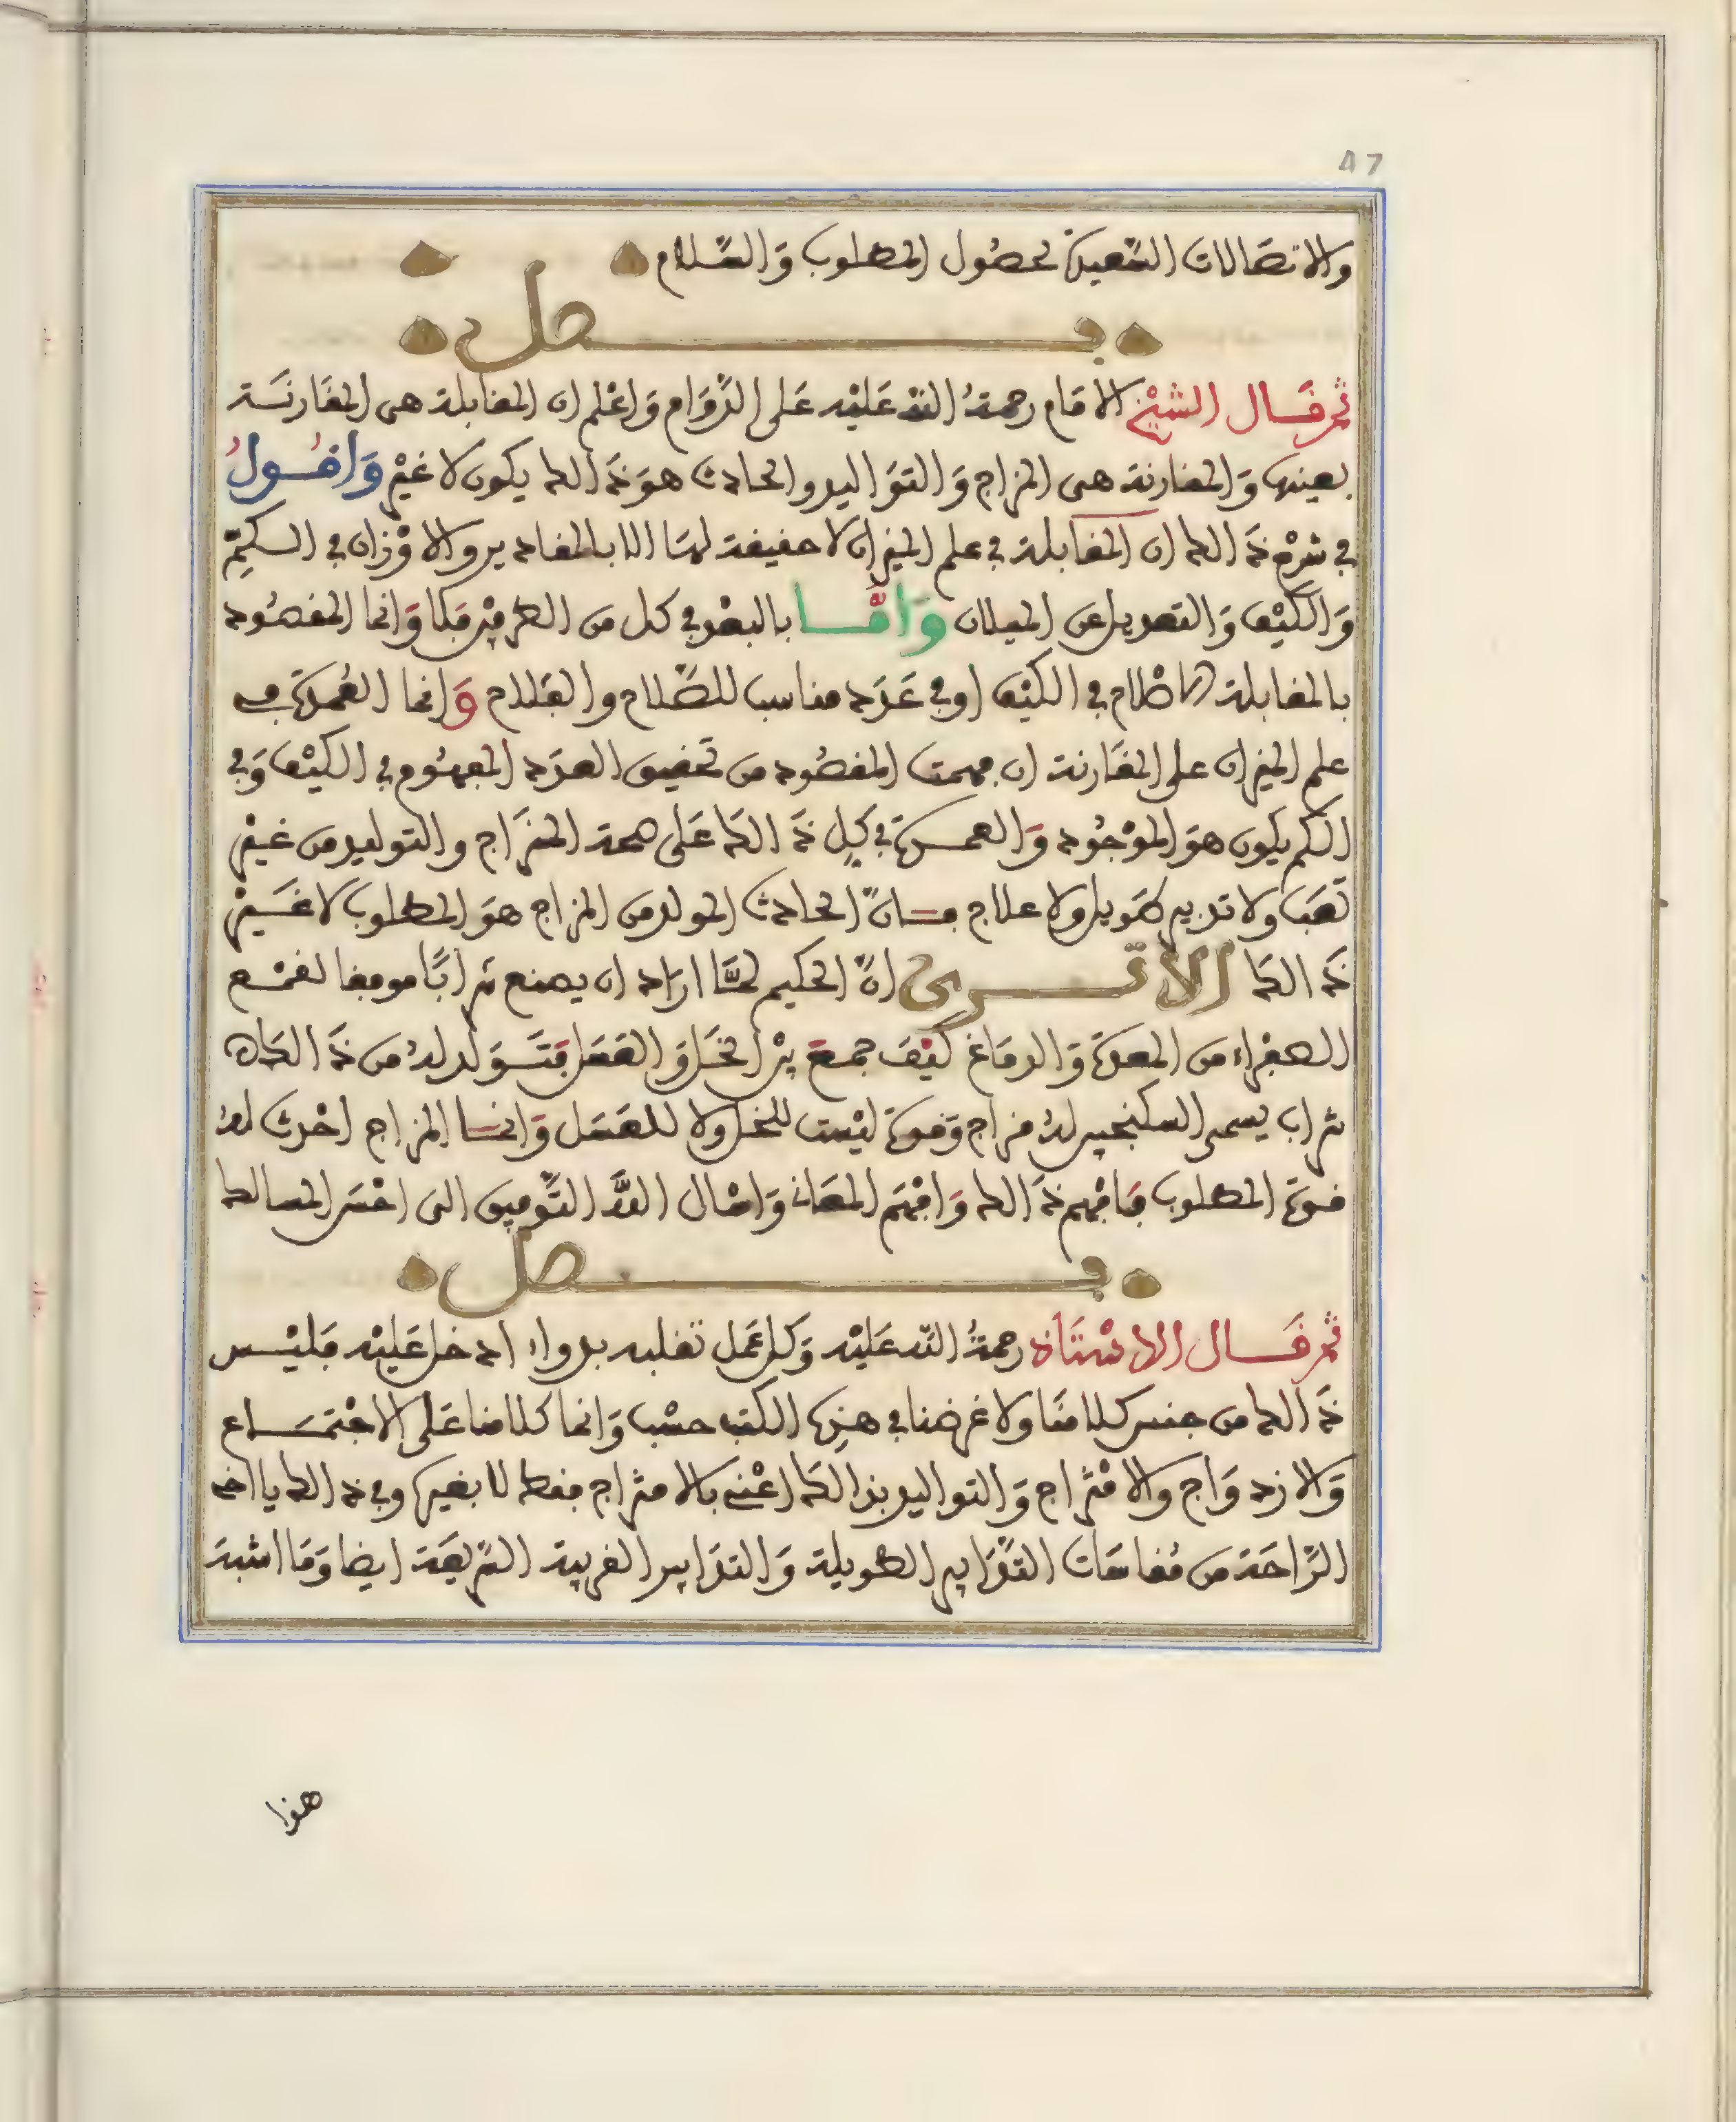 47
والاتصالات السَّعيدة لحصُول المطلوب وَالسَّلام
فصل
ثم قَال الشيْخ الامَام رحمةُ اللَّه عَليْه عَلى الدَّوَام وَاعْلم ان المقابلة هى المقَارنَة
بعينها وَالمقارنة هى المزاج وَالتوَاليد والحادث هوَ ذَالك يكون لا غيْر وَاقُولُ
في شرْح ذَالك ان المقَابلة في علم الميزان لا حقيقة لهَا الا بالمقادير والاوْزان في الكمِّ
وَالكيْف وَالتعديل عن الميلان وَامَّا بالبعْد في كل من الطرفيْن فكا وَانما المقصُود
بالمقابلة في الكيْف اوفي عَدَد مناسب للصَّلاح والفَلاح وَانما العُمدة في
علم الميزان على المقَارنة ان فهمت المقصُود من تحقيق العدَد المفهُوم في الكيْف وَفي
الكم يكون هوَ الموْجُود وَالعمدة في كل ذَالكَ عَلى صحة المزَاج والتوليد من غيْر
تعَب ولا تدبير طَويل ولا علاج فان الحادث المولد من المزاج هوَ المطلوب لا غَيْر
ذَالكَ الا ترى انَّ الحكيم لمَّا ارَاد ان يصنع شرَابًا موافقا لقمْع
الصفراء من المعدة وَالدمَاغ كيْفَ جمعَ بيْن الخَل وَالعَسَل فتَوَلد لهُ من ذَالكَ
شراب يسمى السكنجبين لهُ مزاج وَقوة ليْست للخل ولا للعَسَل وَانما المزاج احْدث لهُ
قوة المطلوب فَافْهم ذَالك وَافْهَم المعَانى وَاسْال اللهَ التَّوفيق الى احْسَن المسالك
فصل
ثم قَال الاسْتَاذ رحمةُ اللّه عَليْه وَكل عَمل تقلبه بدواء ادخل عَليْه فَليْس
ذَالك من جنس كلامنَا ولا غرضنا في هذه الكتب حسْب وَانما كلامنا عَلى الاجْتمَاع
وَالازدوَاج والامْتزاج وَالتواليد بذالكَ اعْنى بالامتزاج فقط لا بغيره وفي ذالك يا اخى
الرَّاحَة من مُقاسَات التدَابير الطويلة وَالتدَابير الغريبة السّريعَة ايضا وَمَا اشبه
هذا